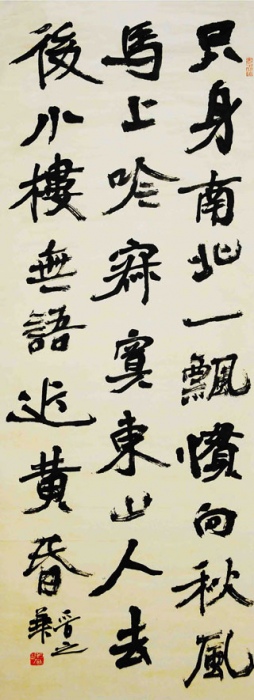 只身南北一飄慣向秋風
馬上吟寂寞東山人去
後小樓無語近黃昏
晉之
華